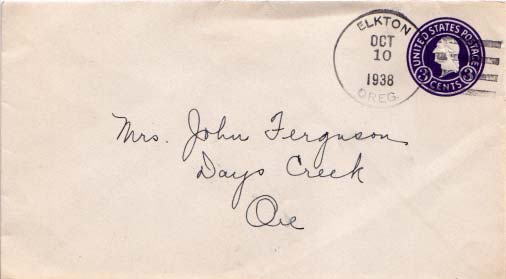 ELKTON
OCT
10
1938
OREG.
UNITED STATES POSTAGE
3 CENTS 3
Mrs. John Ferguson
Days Creek
Ore